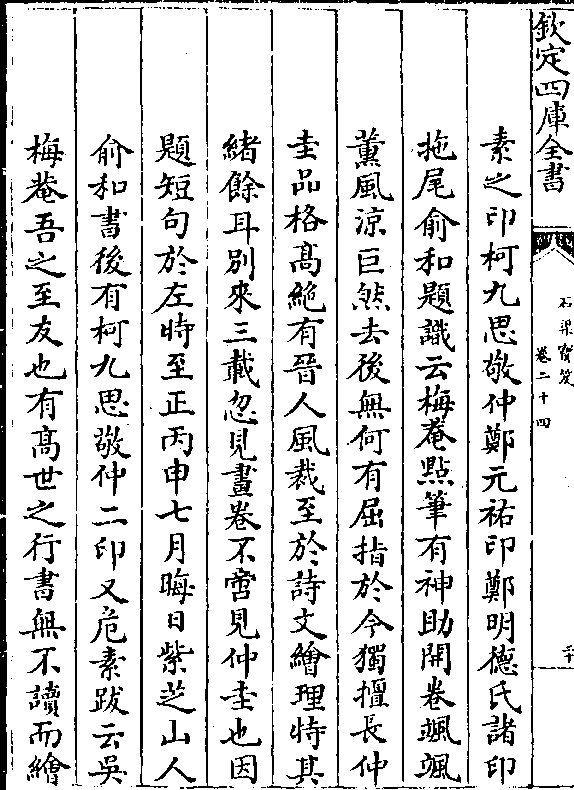 欽定四庫全書
石渠寶笈
卷二十四
二十
素之印柯九思敬仲鄭元祐印鄭明德氏諸印
拖尾俞和題識云梅菴點筆有神助開卷颯颯
薰風涼巨然去後無何有屈指於今獨擅長仲
圭品格髙絶有晉人風裁至於詩文繪理特其
緒餘耳别來三載忽見畫卷不啻見仲圭也因
題短句於左時至正丙申七月晦日紫芝山人
俞和書後有柯九思敬仲二印又危素跋云吳
梅菴吾之至友也有髙世之行書無不讀而繪